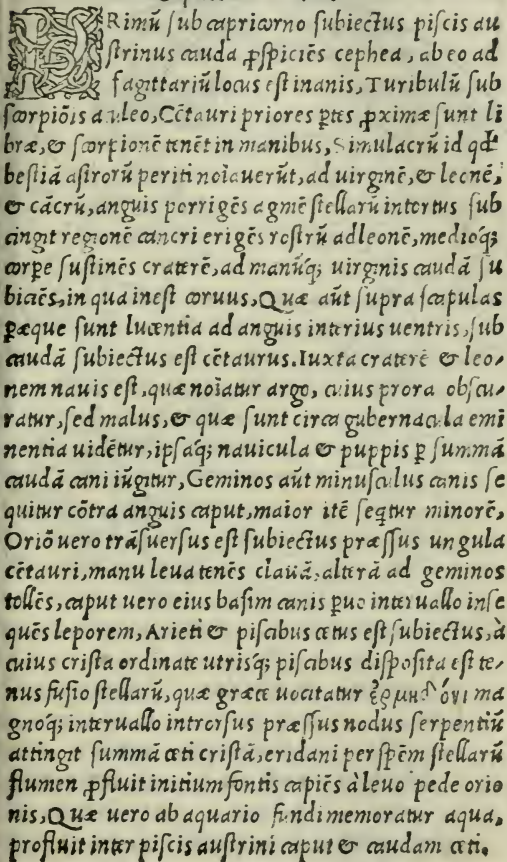 PRimũ ſub capricorno ſubiectus piſcis au
ſtrinus cauda ꝓſpiciẽs cephea, ab eo ad
ſagittariũ locus eſt inanis, Turibulũ ſub
ſcorpiõis aculeo, Cẽtauri priores ꝑtes ꝓximæ ſunt li
bræ, & ſcorpionẽ tenẽt in manibus, Simulacrũ id qđ
beſtiã aſtrorũ periti noĩauerũt, ad uirginẽ, & leonẽ,
& cãcrũ, anguis porrigẽs agmẽ ſtellarũ intortus ſub
cingit regionẽ cancri erigẽs roſtrũ ad leonẽ, medioq;
corpe ſuſtinẽs craterẽ, ad manũq; uirginis caudã ſu
biciẽs, in qua ineſt coruus, Quæ aũt ſupra ſcapulas
ꝑæque ſunt lucentia ad anguis interius uentris, ſub
caudã ſubiectus eſt cẽtaurus. Iuxta craterẽ & leo⸗
nem nauis eſt, quæ noĩatur argo, cuius prora obſcu⸗
ratur, ſed malus, & quæ ſunt circa gubernacula emi
nentia uidẽtur, ipſaq; nauicula & puppis ꝑ ſummã
caudã cani iũgitur, Geminos aũt minuſculus canis ſe
quitur cõtra anguis caput, maior itẽ ſeqtur minorẽ,
Oriõ uero trãſuerſus eſt ſubiectus præſſus ungula
cẽtauri, manu leua tenẽs clauã, alterã ad geminos
tollẽs, caput uero eius baſim canis ꝑuo interuallo inſe
quẽs leporem, Arieti & piſcibus cetus eſt ſubiectus, à
cuius criſta ordinate utriſq; piſcibus diſpoſita eſt te⸗
nus fuſio ſtellarũ, quæ græce uocitatur ma
gnoq; interuallo introrſus præſſus nodus ſerpentiũ
attingit ſummã ceti criſtã, eridani per ſpẽm ſtellarũ
flumen ꝓfluit initium fontis capiẽs à leuo pede orio
nis, Quæ uero ab aquario fundi memoratur aqua,
profluit inter piſcis auſtrini caput & caudam ceti.